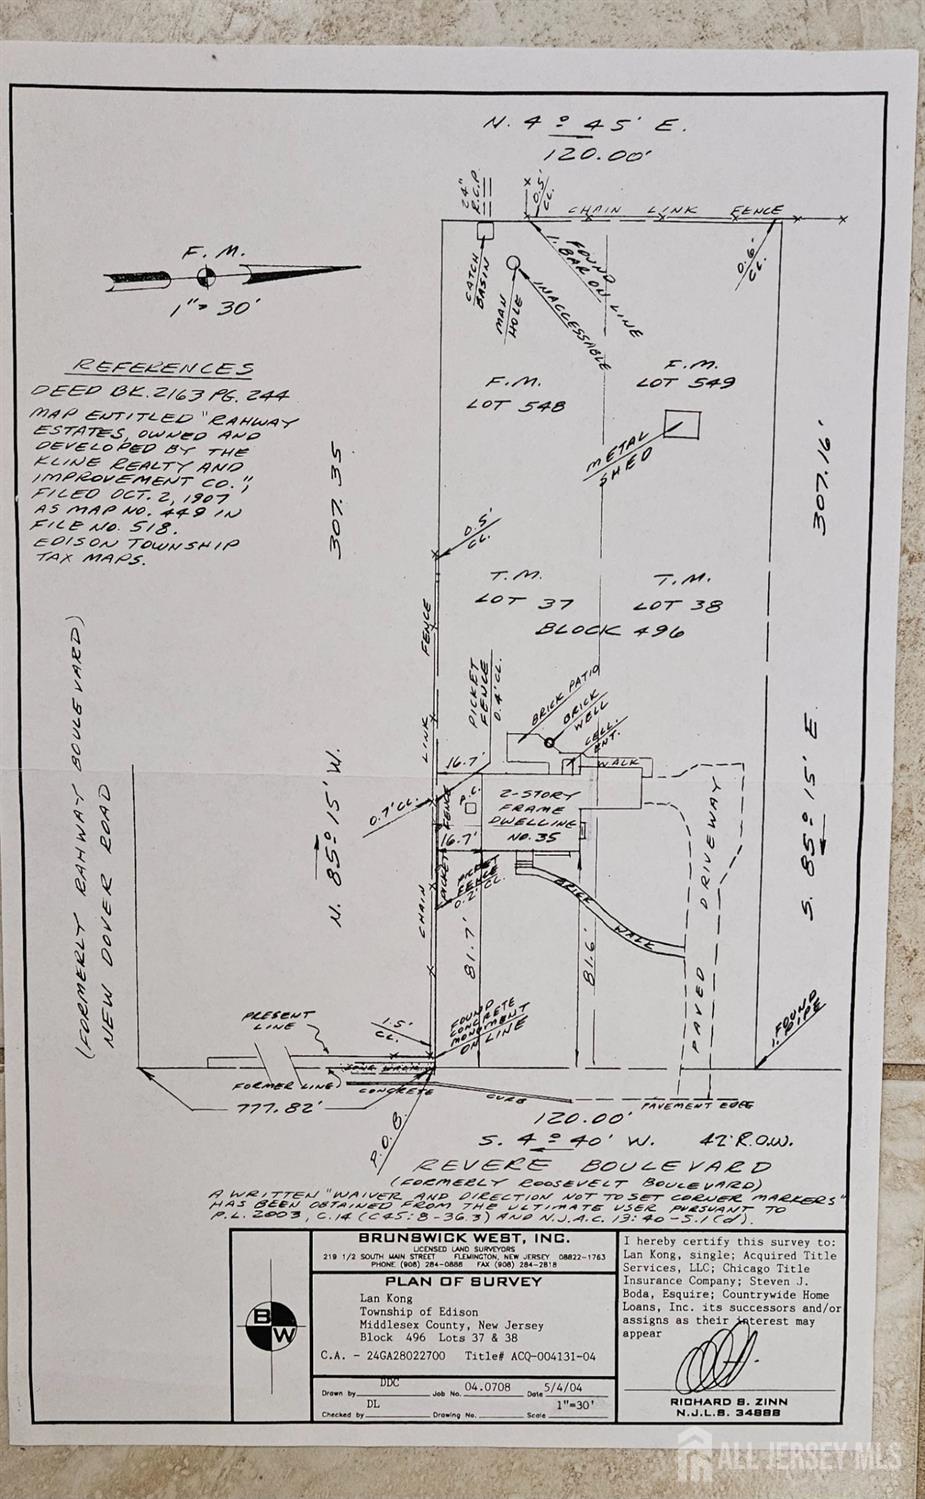 N. 4° 45' E.
120.00'
24"
R.C.P.
0.5'
CL.
CHAIN LINK FENCE
0.6'
CL.
F. M.
1"= 30'
CATCH
BASIN
MAN
HOLE
INACCESSABLE
FOUND
1. BAR ON LINE
REFERENCES
DEED BK. 2163 PG. 244
MAP ENTITLED "RAHWAY
ESTATES, OWNED AND
DEVELOPED BY THE
KLINE REALTY AND
IMPROVEMENT CO.",
FILED OCT. 2, 1907
AS MAP NO. 449 IN
FILE NO. 518.
EDISON TOWNSHIP
TAX MAPS.
F. M.
LOT 548
F. M.
LOT 549
METAL
SHED
307.35
307.16'
0.5'
CL.
T. M.
LOT 37
T. M.
LOT 38
BLOCK 496
CHAIN LINK FENCE
PICKET
FENCE
0.4' CL.
BRICK PATIO
BRICK
WELL
CELL.
ENT.
WALK
16.7'
0.7' CL.
2-STORY
FRAME
DWELLING
NO. 35
16.7'
PICKET FENCE
PICKET
FENCE
0.2' CL.
BRICK WALK
PAVED DRIVEWAY
N. 85° 15' W.
S. 85° 15' E.
(FORMERLY RAHWAY BOULEVARD)
NEW DOVER ROAD
81.7'
81.6'
PRESENT
LINE
1.5'
CL.
FOUND
CONCRETE
MONUMENT
ON LINE
FOUND
1. PIPE
FORMER LINE
CONCRETE
CURB
PAVEMENT EDGE
777.82'
P.O.B.
120.00'
S. 4° 40' W.
42' R.O.W.
REVERE BOULEVARD
(FORMERLY ROOSEVELT BOULEVARD)
A WRITTEN "WAIVER AND DIRECTION NOT TO SET CORNER MARKERS"
HAS BEEN OBTAINED FROM THE ULTIMATE USER PURSUANT TO
P.L. 2003, C.14 (C45:8-36.3) AND N.J.A.C. 13:40-5.1(d).
BW
BRUNSWICK WEST, INC.
LICENSED LAND SURVEYORS
219 1/2 SOUTH MAIN STREET FLEMINGTON, NEW JERSEY 08822-1763
PHONE (908) 284-0888 FAX (908) 284-2818
PLAN OF SURVEY
Lan Kong
Township of Edison
Middlesex County, New Jersey
Block 496 Lots 37 & 38
C.A. - 24GA28022700 Title# ACQ-004131-04
Drawn by DDC Job No. 04.0708 Date 5/4/04
Checked by DL Drawing No. Scale 1"=30'
I hereby certify this survey to:
Lan Kong, single; Acquired Title
Services, LLC; Chicago Title
Insurance Company; Steven J.
Boda, Esquire; Countrywide Home
Loans, Inc. its successors and/or
assigns as their interest may
appear
RICHARD S. ZINN
N.J.L.S. 34888
ALL JERSEY MLS